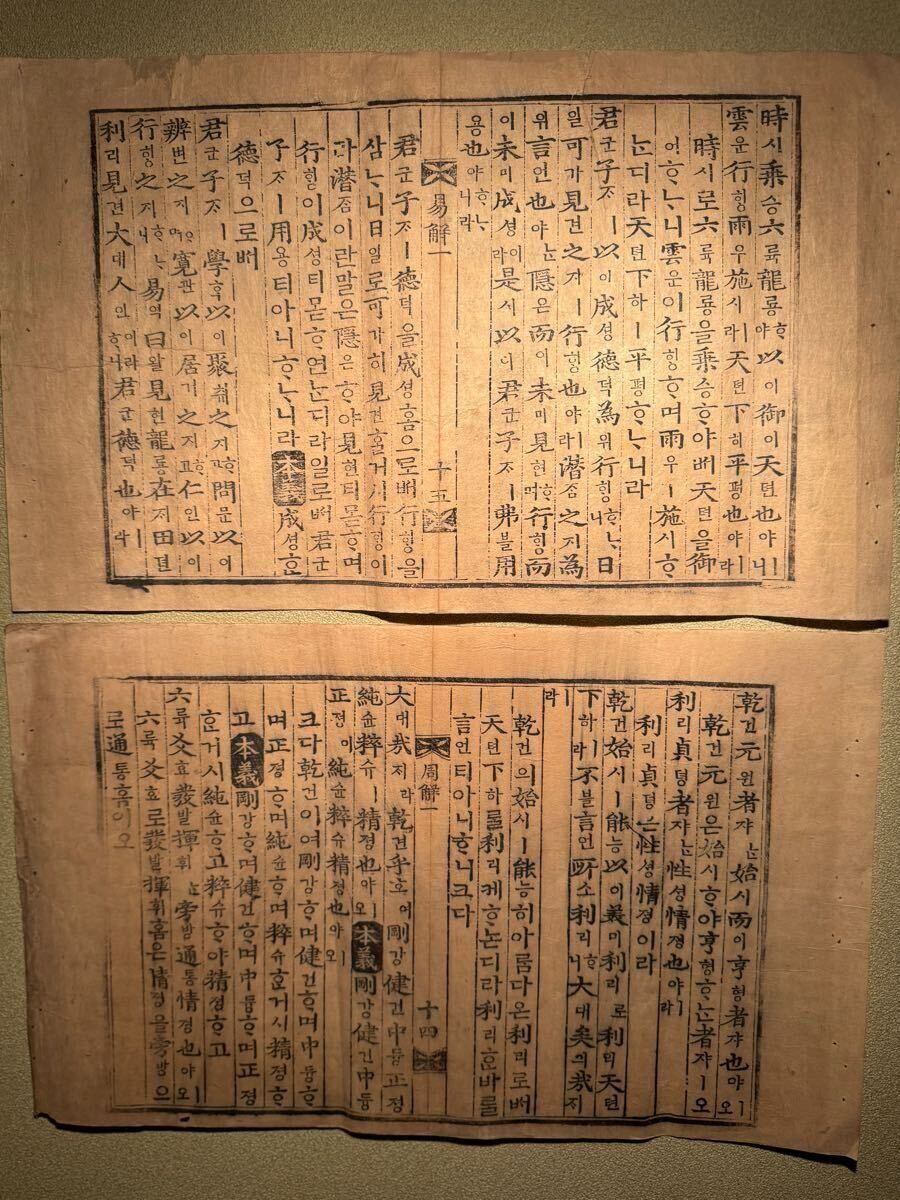 時시乘승六륙龍룡ᄒᆞ야以이御어天텬也야ㅣ니
雲운行ᄒᆡᆼ雨우施시라ㅣ天텬下하平평也야ㅣ라
時시로六륙龍룡을乘승ᄒᆞ야ᄡᅥ天텬을御
어ᄒᆞᄂᆞ니雲운이行ᄒᆡᆼᄒᆞ며雨우ㅣ施시ᄒᆞ
ᄂᆞᆫ디라天텬下하ㅣ平평ᄒᆞᄂᆞ니라
君군子ᄌᆞㅣ以이成셩德덕為위行ᄒᆡᆼᄒᆞᄂᆞ니日
일可가見견之지ㅣ行ᄒᆡᆼ也야ㅣ라潛ᄌᆞᆷ之지為
위言언也야ᄂᆞᆫ隱은而이未미見현ᄒᆞ며行ᄒᆡᆼ而
이未미成셩이라是시以이君군子ᄌᆞㅣ弗불用
용也야ᄒᆞᄂᆞ니라
易解一 十五
君군子ᄌᆞㅣ德덕을成셩홈으로ᄡᅥ行ᄒᆡᆼ을
삼ᄂᆞ니日일로可가히見견ᄒᆞᆯ거시行ᄒᆡᆼ이
라潛ᄌᆞᆷ이란말은隱은ᄒᆞ야見현티몯ᄒᆞ며
行ᄒᆡᆼ이成셩티몯ᄒᆞ연ᄂᆞᆫ디라일로ᄡᅥ君군
子ᄌᆞㅣ用용티아니ᄒᆞᄂᆞ니라本義成셩ᄒᆞᆫ
德덕으로ᄡᅥ
君군子ᄌᆞㅣ學ᄒᆞᆨ以이聚취之지ᄒᆞ고問문以이
辨변之지ᄒᆞ며寬관以이居거之지ᄒᆞ고仁인以이
行ᄒᆡᆼ之지ᄒᆞᄂᆞ니易역曰왈見현龍룡在ᄌᆡ田뎐
利리見견大대人인이라ᄒᆞ니君군德덕也야ㅣ라
乾건元원者쟈ᄂᆞᆫ始시而이亨형者쟈也야ㅣ오
乾건元원은始시ᄒᆞ야亨형ᄒᆞᄂᆞᆫ者쟈ㅣ오
利리貞뎡者쟈ᄂᆞᆫ性셩情졍也야ㅣ라
利리貞뎡은性셩情졍이라
乾건始시ㅣ能능以이美미利리로利리天텬
下하ㅣ라不블言언所소利리ᄒᆞ니大대矣의哉ᄌᆡ
ㅣ라
乾건의始시ㅣ能능히아ᄅᆞᆷ다온利리로ᄡᅥ
天텬下하ᄅᆞᆯ利리케ᄒᆞᄂᆞᆫ디라利리ᄒᆞᆫ바ᄅᆞᆯ
言언티아니ᄒᆞ니크다
周解一 十四
大대哉ᄌᆡ라乾건乎호여剛강健건中듕正졍
純슌粹슈ㅣ精졍也야ㅣ오本義剛강健건中듕
正졍이純슌粹슈精졍也야ㅣ오
크다乾건이여剛강ᄒᆞ며健건ᄒᆞ며中듕ᄒᆞ
며正졍ᄒᆞ며純슌ᄒᆞ며粹슈ᄒᆞᆫ거시精졍ᄒᆞ
고本義剛강ᄒᆞ며健건ᄒᆞ며中듕ᄒᆞ며正졍
ᄒᆞᆫ거시純슌ᄒᆞ고粹슈ᄒᆞ야精졍ᄒᆞ고
六륙爻효發발揮휘ᄂᆞᆫ旁방通통情졍也야ㅣ오
六륙爻효로發발揮휘홈은情졍을旁방으
로通통홈이오